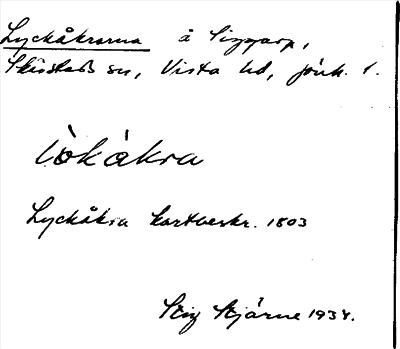 Lyckåkrarna å Siggarp,
Skärstads sn, Vista hd, Jönk. l.
lökåkra
Lyckåkra kartbeskr. 1803
Stig Stjärne 1934.